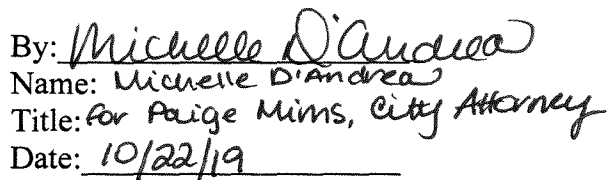 By: Michelle D'Andrea
Name: Michelle D'Andrea
Title: for Paige Mims, City Attorney
Date: 10/22/19